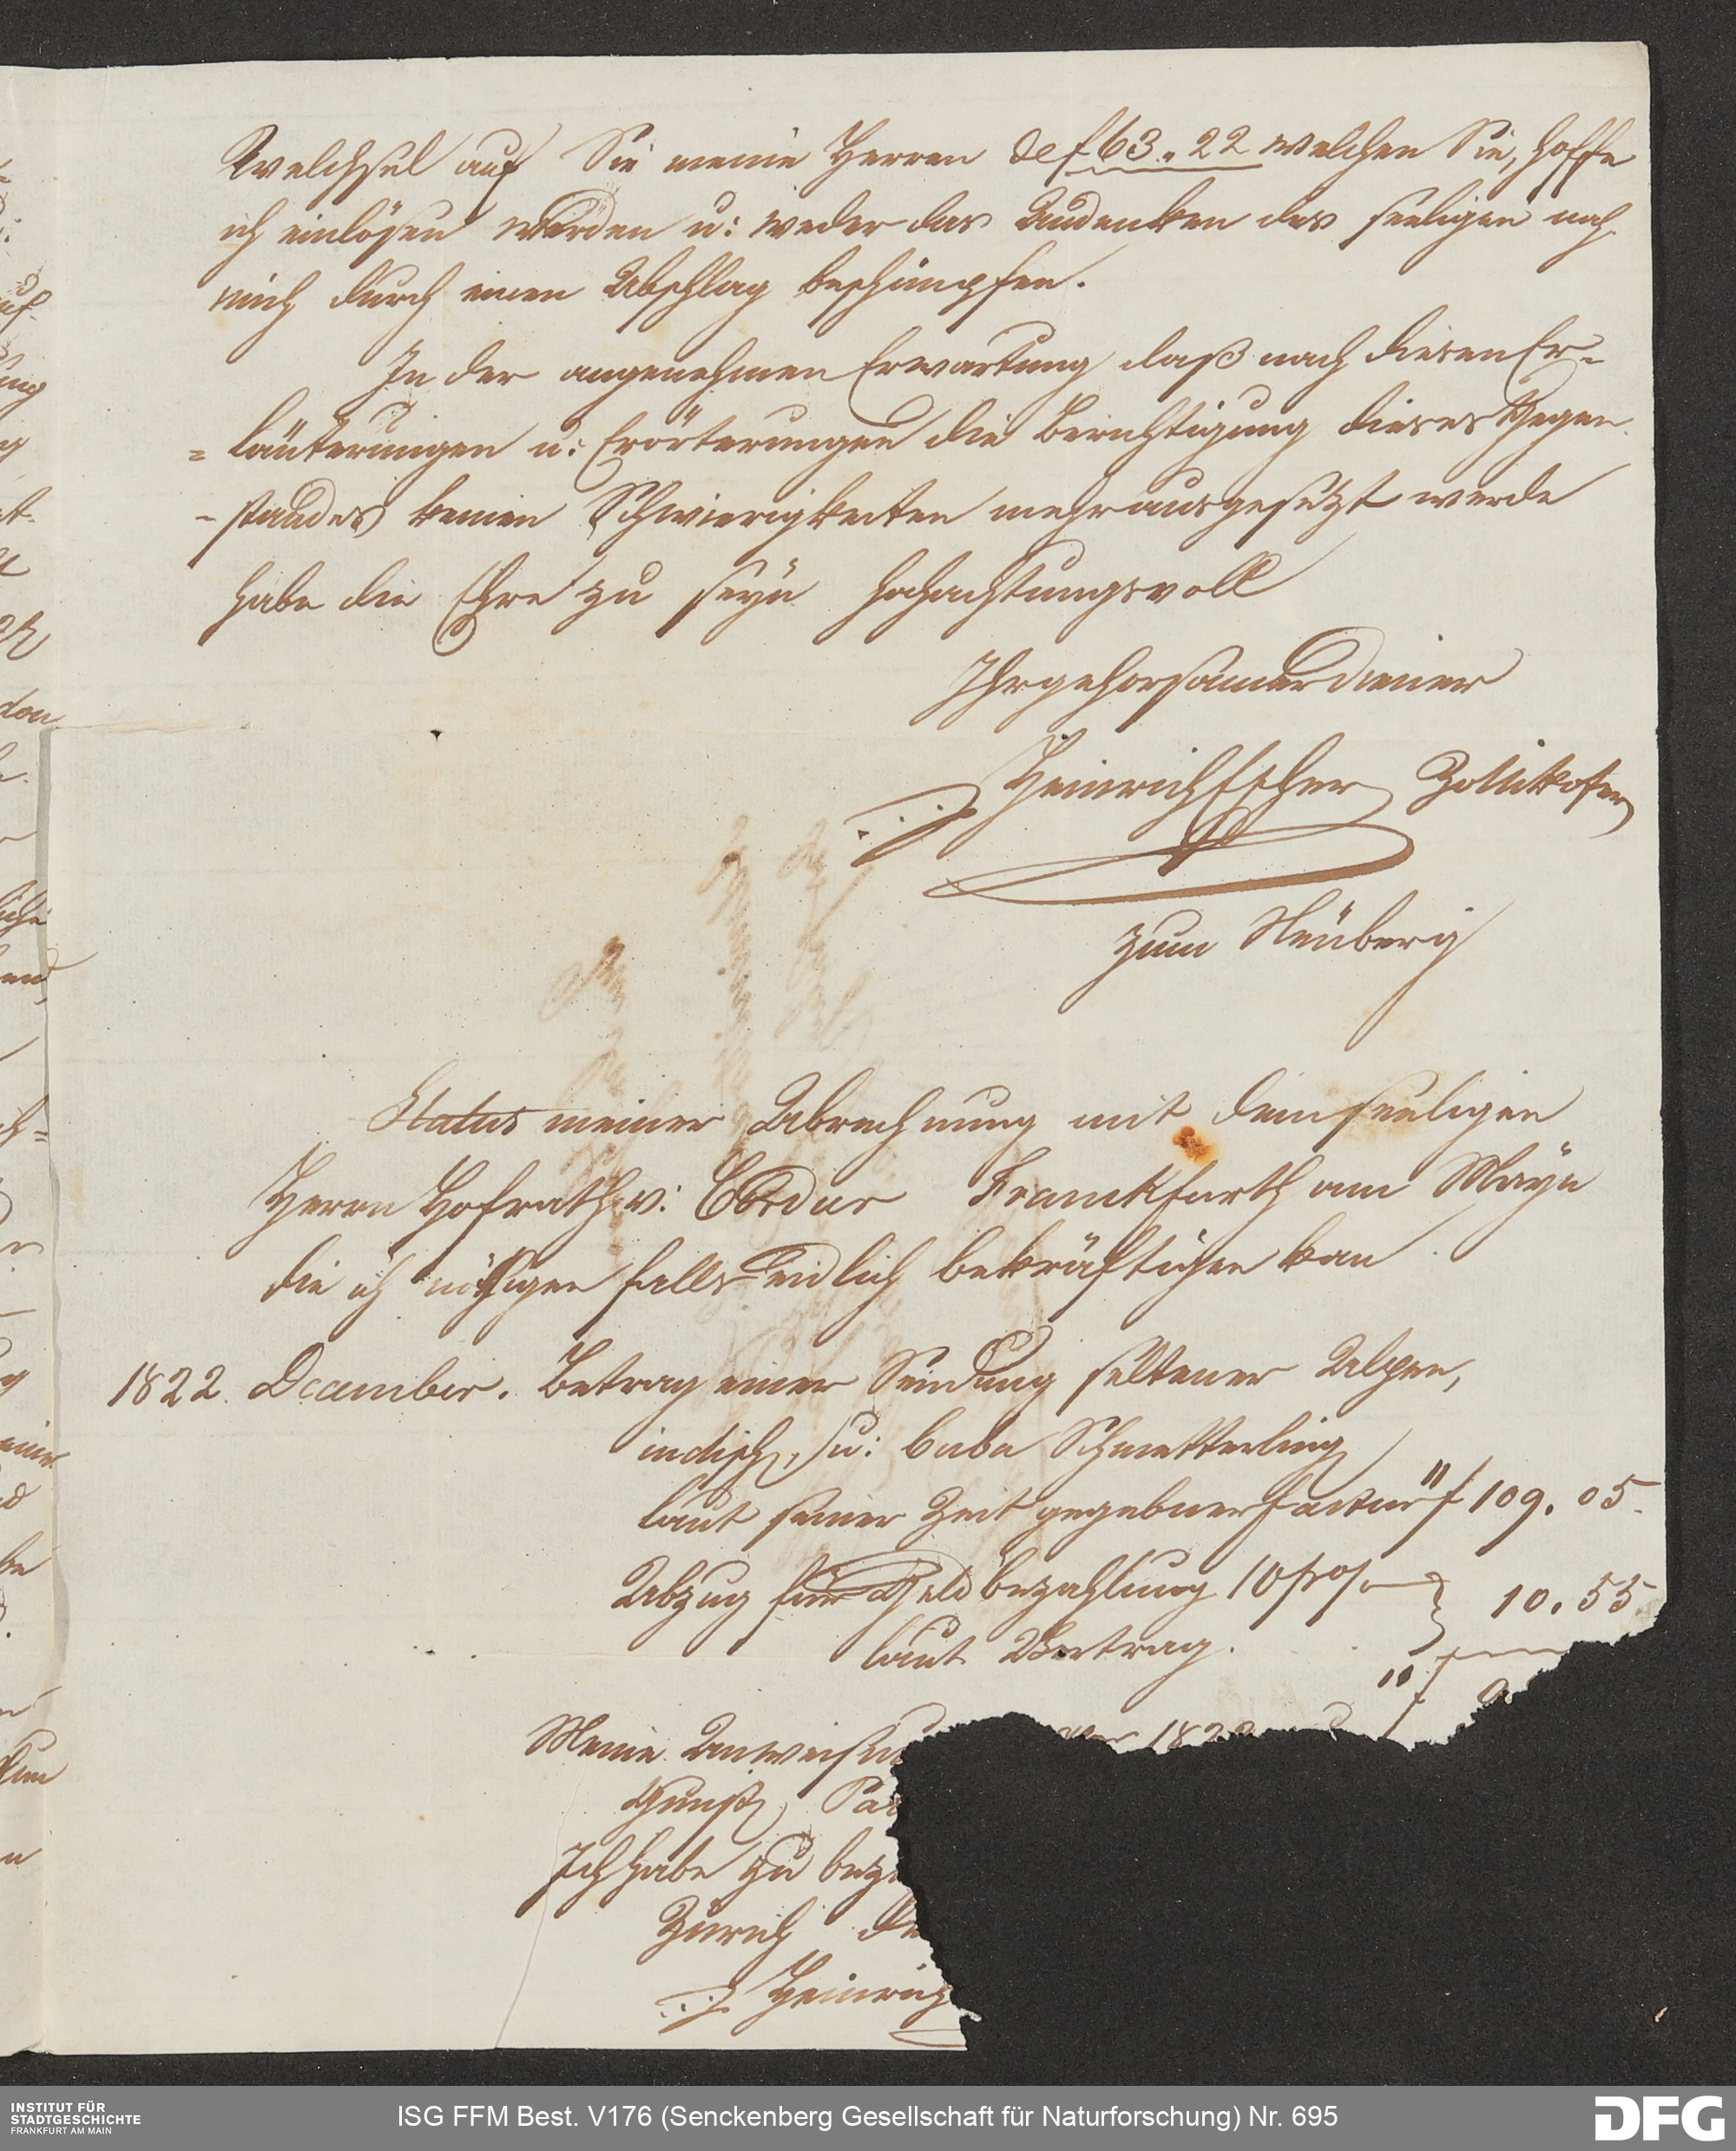 Wechsel auf Sie meine Herren de f 63.22 welchen Sie, hoffe
ich einlösen werden u: weder das Andenken des seeligen noch
mich durch einen Abschlag beschimpfen.
In der angenehmen Erwartung daß nach diesen Er=
=läuterungen u: Erörterungen die Berichtigung dieses Gegen
-standes keinen Schwierigkeiten mehr ausgesezt werde
habe die Ehre zu seyn hochachtungsvoll
Ihr gehorsamer Diener
Heinrich Escher Zollikofer
zum Neüberg
Status meiner Abrechnung mit dem seeligen
Herrn Hofrath v: Franckfurth am Mayn
die ich nöthigen falls eidlich bekräftigen kan
1822. December. Betrag einer Sendung seltener Alpen,
indisch, u: Cuba Schmetterling
laut seiner Zeit gegebner Factur " f 109. 05.
Abzug für Geld bezahlung 10 pro%
10. 55
laut Vertrag.
" f
Meine Anweisu
1822
Gunst, Pa
Ich habe zu beza
Zürich de
Heinrich
INSTITUT FÜR
STADTGESCHICHTE
FRANKFURT AM MAIN
ISG FFM Best. V176 (Senckenberg Gesellschaft für Naturforschung) Nr. 695
DFG